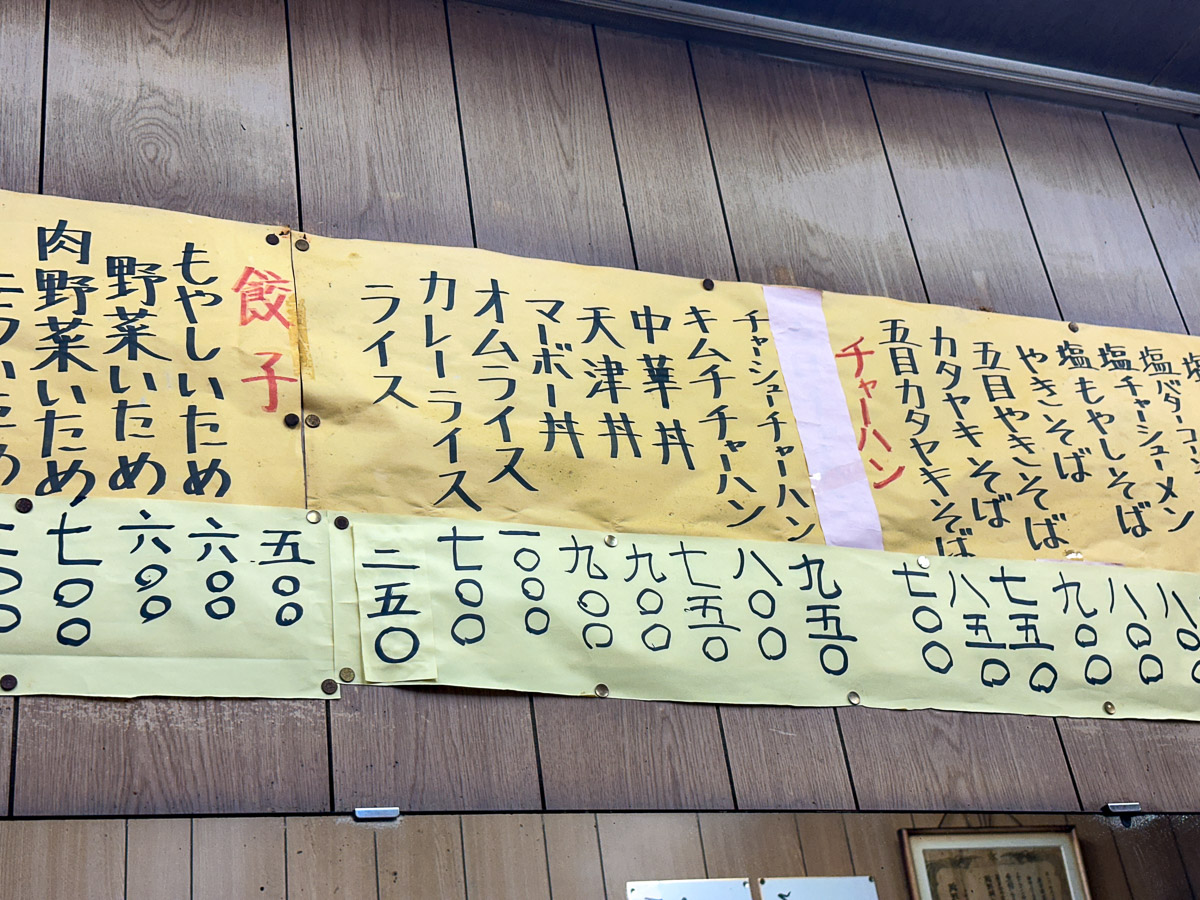 塩バターコーン
塩チャーシューメン
塩もやしそば
やきそば
五目やきそば
カタヤキそば
五目カタヤキそば
チャーハン
チャーシューチャーハン
キムチチャーハン
中華丼
天津丼
マーボー丼
オムライス
カレーライス
ライス
餃子
もやしいため
野菜いため
肉野菜いため
八〇〇
八〇〇
九〇〇
七五〇
八五〇
七〇〇
九五〇
八〇〇
七五〇
九〇〇
九〇〇
一〇〇〇
七〇〇
二五〇
五〇〇
六〇〇
六〇〇
七〇〇